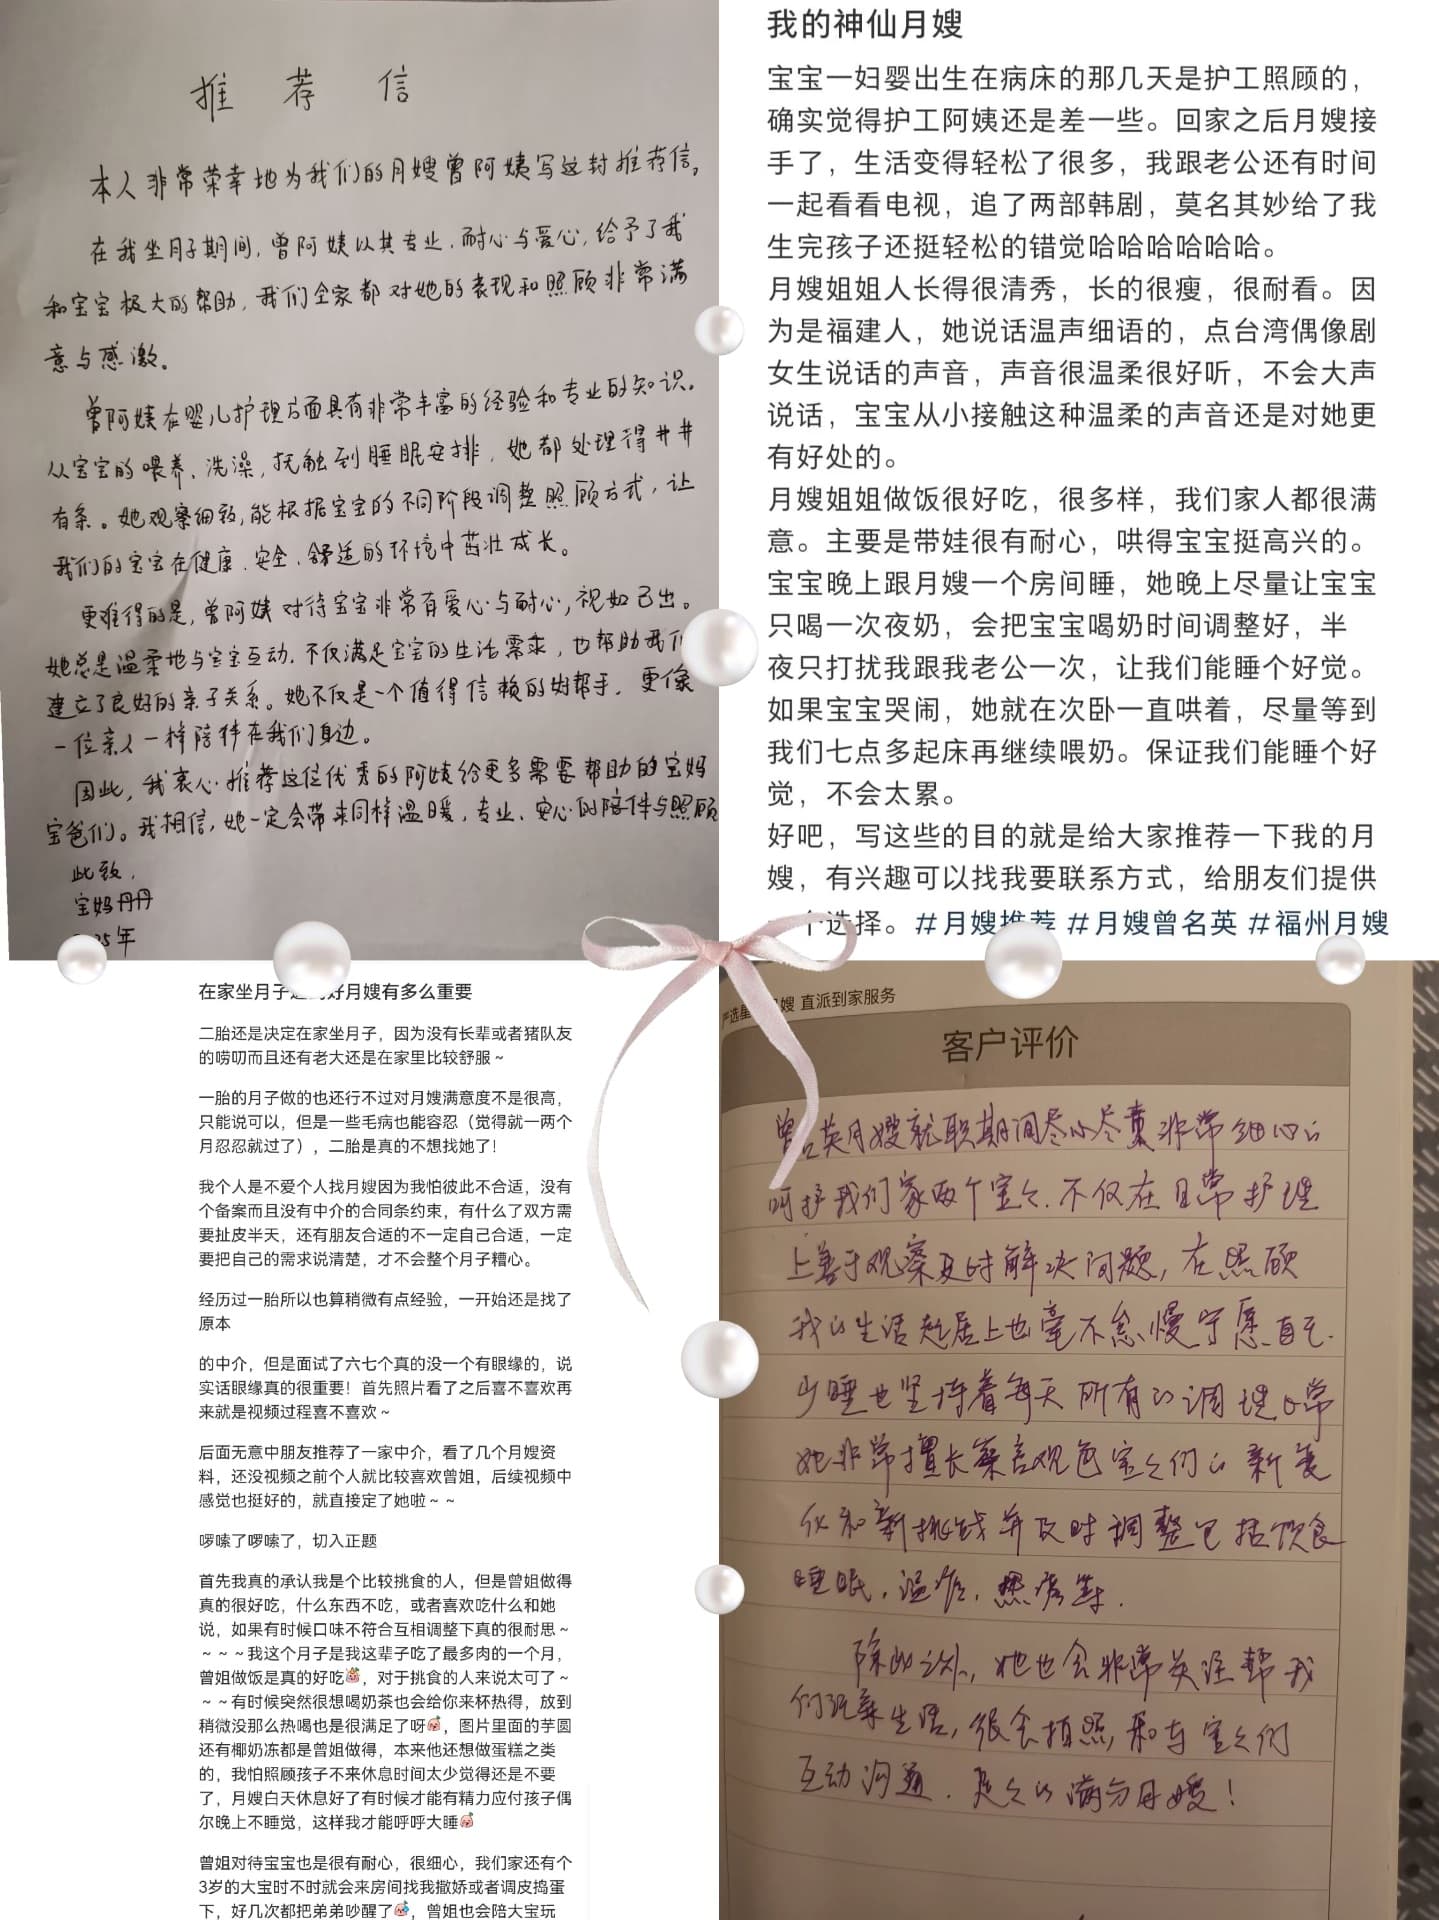 推荐信
本人非常荣幸地为我们的月嫂曾阿姨写这封推荐信。
在我坐月子期间，曾阿姨以其专业、耐心与爱心，给予了我
和宝宝极大的帮助，我们全家都对她的表现和照顾非常满
意与感激。
曾阿姨在婴儿护理方面具有非常丰富的经验和专业的知识。
从宝宝的喂养、洗澡，抚触到睡眠安排，她都处理得井井
有条。她观察细致，能根据宝宝的不同阶段调整照顾方式，让
我们的宝宝在健康、安全、舒适的环境中茁壮成长。
更难得的是，曾阿姨对待宝宝非常有爱心与耐心，视如己出。
她总是温柔地与宝宝互动，不仅满足宝宝的生活需求，也帮助我们
建立了良好的亲子关系。她不仅是一个值得信赖的好帮手，更像
一位亲人一样陪伴在我们身边。
因此，我衷心推荐这位优秀的阿姨给更多需要帮助的宝妈
宝爸们。我相信，她一定会带来同样温暖，专业、安心的陪伴与照顾
此致，
宝妈丹丹
25年
我的神仙月嫂
宝宝一妇婴出生在病床的那几天是护工照顾的，
确实觉得护工阿姨还是差一些。回家之后月嫂接
手了，生活变得轻松了很多，我跟老公还有时间
一起看看电视，追了两部韩剧，莫名其妙给了我
生完孩子还挺轻松的错觉哈哈哈哈哈哈。
月嫂姐姐人长得很清秀，长的很瘦，很耐看。因
为是福建人，她说话温声细语的，点台湾偶像剧
女生说话的声音，声音很温柔很好听，不会大声
说话，宝宝从小接触这种温柔的声音还是对她更
有好处的。
月嫂姐姐做饭很好吃，很多样，我们家人都很满
意。主要是带娃很有耐心，哄得宝宝挺高兴的。
宝宝晚上跟月嫂一个房间睡，她晚上尽量让宝宝
只喝一次夜奶，会把宝宝喝奶时间调整好，半
夜只打扰我跟我老公一次，让我们能睡个好觉。
如果宝宝哭闹，她就在次卧一直哄着，尽量等到
我们七点多起床再继续喂奶。保证我们能睡个好
觉，不会太累。
好吧，写这些的目的就是给大家推荐一下我的月
嫂，有兴趣可以找我要联系方式，给朋友们提供
一个选择。#月嫂推荐 #月嫂曾名英 #福州月嫂
在家坐月子 好月嫂有多么重要
二胎还是决定在家坐月子，因为没有长辈或者猪队友
的唠叨而且还有老大还是在家里比较舒服～
一胎的月子做的也还行不过对月嫂满意度不是很高，
只能说可以，但是一些毛病也能容忍（觉得就一两个
月忍忍就过了），二胎是真的不想找她了！
我个人是不爱个人找月嫂因为我怕彼此不合适，没有
个备案而且没有中介的合同条约束，有什么了双方需
要扯皮半天，还有朋友合适的不一定自己合适，一定
要把自己的需求说清楚，才不会整个月子糟心。
经历过一胎所以也算稍微有点经验，一开始还是找了
原本
的中介，但是面试了六七个真的没一个有眼缘的，说
实话眼缘真的很重要！首先照片看了之后喜不喜欢再
来就是视频过程喜不喜欢～
后面无意中朋友推荐了一家中介，看了几个月嫂资
料，还没视频之前个人就比较喜欢曾姐，后续视频中
感觉也挺好的，就直接定了她啦～～
啰嗦了啰嗦了，切入正题
首先我真的承认我是个比较挑食的人，但是曾姐做得
真的很好吃，什么东西不吃，或者喜欢吃什么和她
说，如果有时候口味不符合互相调整下真的很耐思～
～～～我这个月子是我这辈子吃了最多肉的一个月，
曾姐做饭是真的好吃，对于挑食的人来说太可了～
～～有时候突然很想喝奶茶也会给你来杯热得，放到
稍微没那么热喝也是很满足了呀，图片里面的芋圆
还有椰奶冻都是曾姐做得，本来他还想做蛋糕之类
的，我怕照顾孩子不来休息时间太少觉得还是不要
了，月嫂白天休息好了有时候才能有精力应付孩子偶
尔晚上不睡觉，这样我才能呼呼大睡
曾姐对待宝宝也是很有耐心，很细心，我们家还有个
3岁的大宝时不时就会来房间找我撒娇或者调皮捣蛋
下，好几次都把弟弟吵醒了，曾姐也会陪大宝玩
严选星 月嫂 直派到家服务
客户评价
曾名英月嫂就职期间尽心尽责非常细心的
呵护我们家两个宝宝.不仅在日常护理
上善于观察及时解决问题，在照顾
我的生活起居上也毫不怠慢宁愿自己
少睡也坚持着每天所有的调理日常
她非常擅长察言观色宝宝们的新变
化和新挑战并及时调整包括饮食
睡眠，温度，照房等.
除此之外，她也会非常关注帮我
们记录生活，很会拍照，和与宝宝们
互动沟通，是久的满分月嫂！